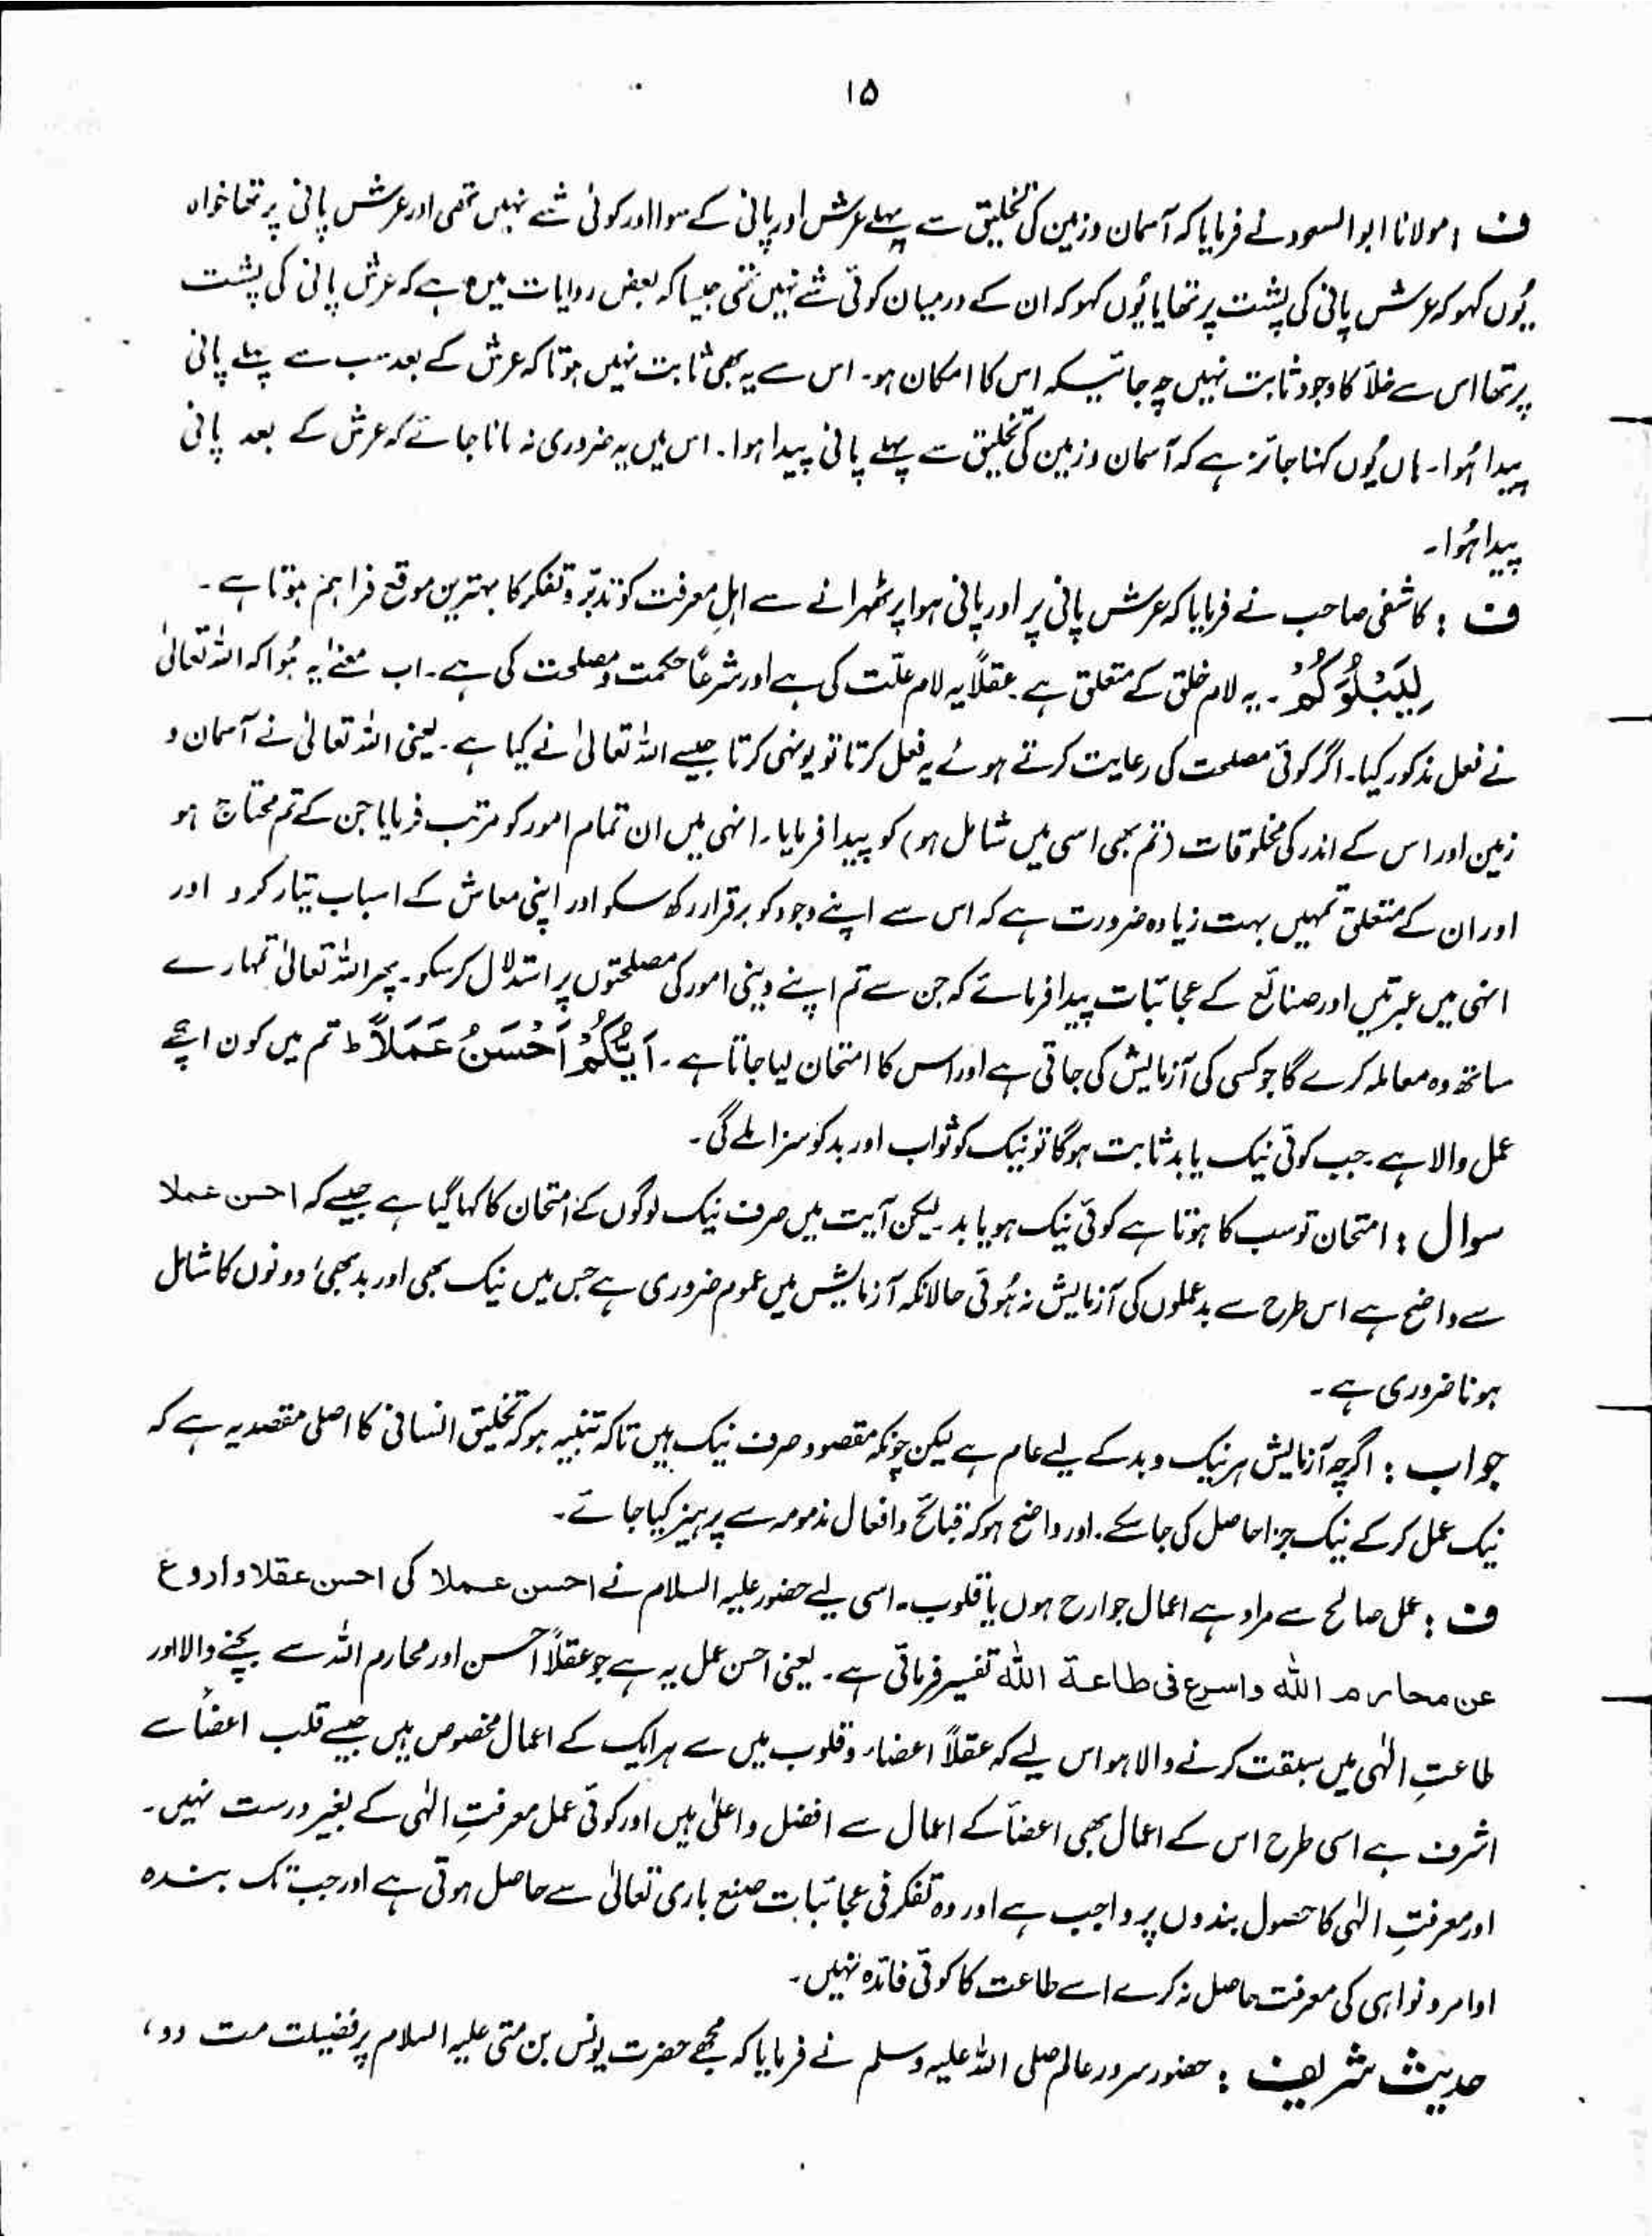 ۱۵
ف : مولانا ابوالسعود نے فرمایا کہ آسمان و زمین کی تخلیق سے پہلے عرش اور پانی کے سوا اور کوئی شے نہیں تھی اور عرش پانی پر تھا خواہ
یُوں کہو کہ عرش پانی کی پشت پر تھا یا یُوں کہو کہ ان کے درمیان کوئی شے نہیں تھی جیسا کہ بعض روایات میں ہے کہ عرش پانی کی پشت
پر تھا اس سے خلأ کا وجود ثابت نہیں چہ جائیکہ اس کا امکان ہو۔ اس سے یہ بھی ثابت نہیں ہوتا کہ عرش کے بعد سب سے پہلے پانی
پیدا ہُوا۔ ہاں یُوں کہنا جائز ہے کہ آسمان و زمین کی تخلیق سے پہلے پانی پیدا ہوا۔ اس میں یہ ضروری نہ مانا جائے کہ عرش کے بعد پانی
پیدا ہُوا۔
ف : کاشفی صاحب نے فرمایا کہ عرش پانی پر اور پانی ہوا پر ٹھہرانے سے اہلِ معرفت کو تدبّر و تفکر کا بہترین موقع فراہم ہوتا ہے۔
لِیَبْلُوَکُمْ ۔ یہ لام خلق کے متعلق ہے۔ عقلاً یہ لام علّت کی ہے اور شرعاً حکمت و مصلحت کی ہے۔ اب معنےٰ یہ ہُوا کہ اللہ تعالیٰ
نے فعل مذکور کیا۔ اگر کوئی مصلحت کی رعایت کرتے ہوئے یہ فعل کرتا تو یونہی کرتا جیسے اللہ تعالیٰ نے کیا ہے۔ یعنی اللہ تعالیٰ نے آسمان و
زمین اور اس کے اندر کی مخلوقات (تم بھی اسی میں شامل ہو) کو پیدا فرمایا۔ انہی میں ان تمام امور کو مرتب فرمایا جن کے تم محتاج ہو
اور ان کے متعلق تمہیں بہت زیادہ ضرورت ہے کہ اس سے اپنے وجود کو برقرار رکھ سکو اور اپنی معاش کے اسباب تیار کرو اور
انہی میں عبرتیں اور صنائع کے عجائبات پیدا فرمائے کہ جن سے تم اپنے دینی امور کی مصلحتوں پر استدلال کر سکو۔ پھر اللہ تعالیٰ تمہارے
ساتھ وہ معاملہ کرے گا جو کسی کی آزمایش کی جاتی ہے اور اس کا امتحان لیا جاتا ہے۔ اَیُّکُمْ اَحْسَنُ عَمَلاً ط تم میں کون اچھے
عمل والا ہے۔ جب کوئی نیک یا بد ثابت ہوگا تو نیک کو ثواب اور بد کو سزا ملے گی۔
سوال : امتحان تو سب کا ہوتا ہے کوئی نیک ہو یا بد۔ لیکن آیت میں صرف نیک لوگوں کے امتحان کا کہا گیا ہے جیسے کہ احسن عملا
سے واضح ہے اس طرح سے بدعملوں کی آزمایش نہ ہُوئی حالانکہ آزمایش میں عموم ضروری ہے جس میں نیک بھی اور بد بھی، دونوں کا شامل
ہونا ضروری ہے۔
جواب : اگرچہ آزمایش ہر نیک و بد کے لیے عام ہے لیکن چونکہ مقصود صرف نیک ہیں تاکہ تنبیہ ہو کہ تخلیق انسانی کا اصلی مقصد یہ ہے کہ
نیک عمل کر کے نیک جزا حاصل کی جا سکے۔ اور واضح ہو کہ قبائح و افعال مذمومہ سے پرہیز کیا جائے۔
ف : عمل صالح سے مراد ہے اعمال جوارح ہوں یا قلوب۔ اسی لیے حضور علیہ السلام نے احسن عملا کی احسن عقلا و اروع
عن محارم اللہ واسرع فی طاعۃ اللہ تفسیر فرمائی ہے۔ یعنی احسن عمل یہ ہے جو عقلاً احسن اور محارم اللہ سے بچنے والا اور
طاعتِ الٰہی میں سبقت کرنے والا ہو اس لیے کہ عقلاً اعضاء و قلوب میں سے ہر ایک کے اعمال مخصوص ہیں جیسے قلب اعضأ سے
اشرف ہے اسی طرح اس کے اعمال بھی اعضأ کے اعمال سے افضل و اعلیٰ ہیں اور کوئی عمل معرفتِ الٰہی کے بغیر درست نہیں۔
اور معرفتِ الٰہی کا حصول بندوں پر واجب ہے اور وہ تفکر فی عجائبات صنع باری تعالیٰ سے حاصل ہوتی ہے اور جب تک بندہ
اوامر و نواہی کی معرفت حاصل نہ کرے اسے طاعت کا کوئی فائدہ نہیں۔
حدیث شریف : حضور سرور عالم صلی اللہ علیہ وسلم نے فرمایا کہ مجھے حضرت یونس بن متی علیہ السلام پر فضیلت مت دو،